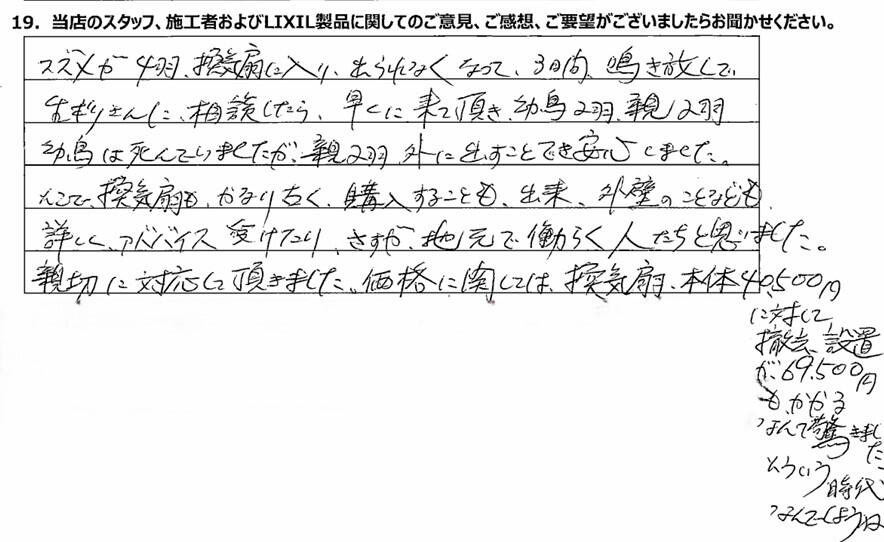 19. 当店のスタッフ、施工者およびLIXIL製品に関してのご意見、ご感想、ご要望がございましたらお聞かせください。
スズメが4羽、換気扇に入り、出られなくなって、3日間、鳴き放しで
さんに、相談したら、早くに来て頂き、幼鳥2羽、親鳥2羽
幼鳥は死んでいましたが、親2羽、外に出すことでき安心しました。
換気扇も、かなり古く、購入することも、出来、外壁のことなども、
詳しく、アドバイス受けたり、さすが、地元で働らく人たちと思いました。
親切に対応して頂きました。価格に関しては、換気扇、本体40,500円
に対して
撤去、設置
が、69,500円
も、かかる
なんて驚きまし
た
そういう
時代
なんでしょうね